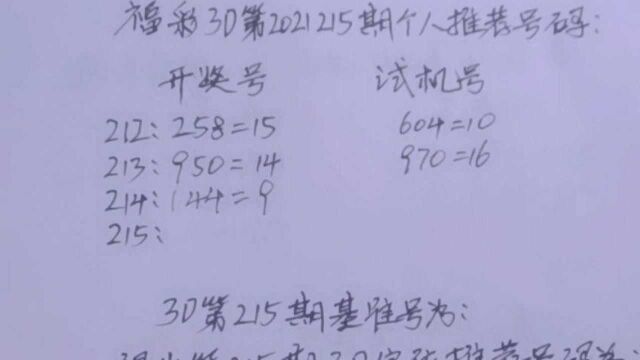 福彩3D第2021215期个人推荐号码:
开奖号 试机号
212: 258=15 604=10
213: 950=14 970=16
214: 144=9
215:
3D第215期基准号为: